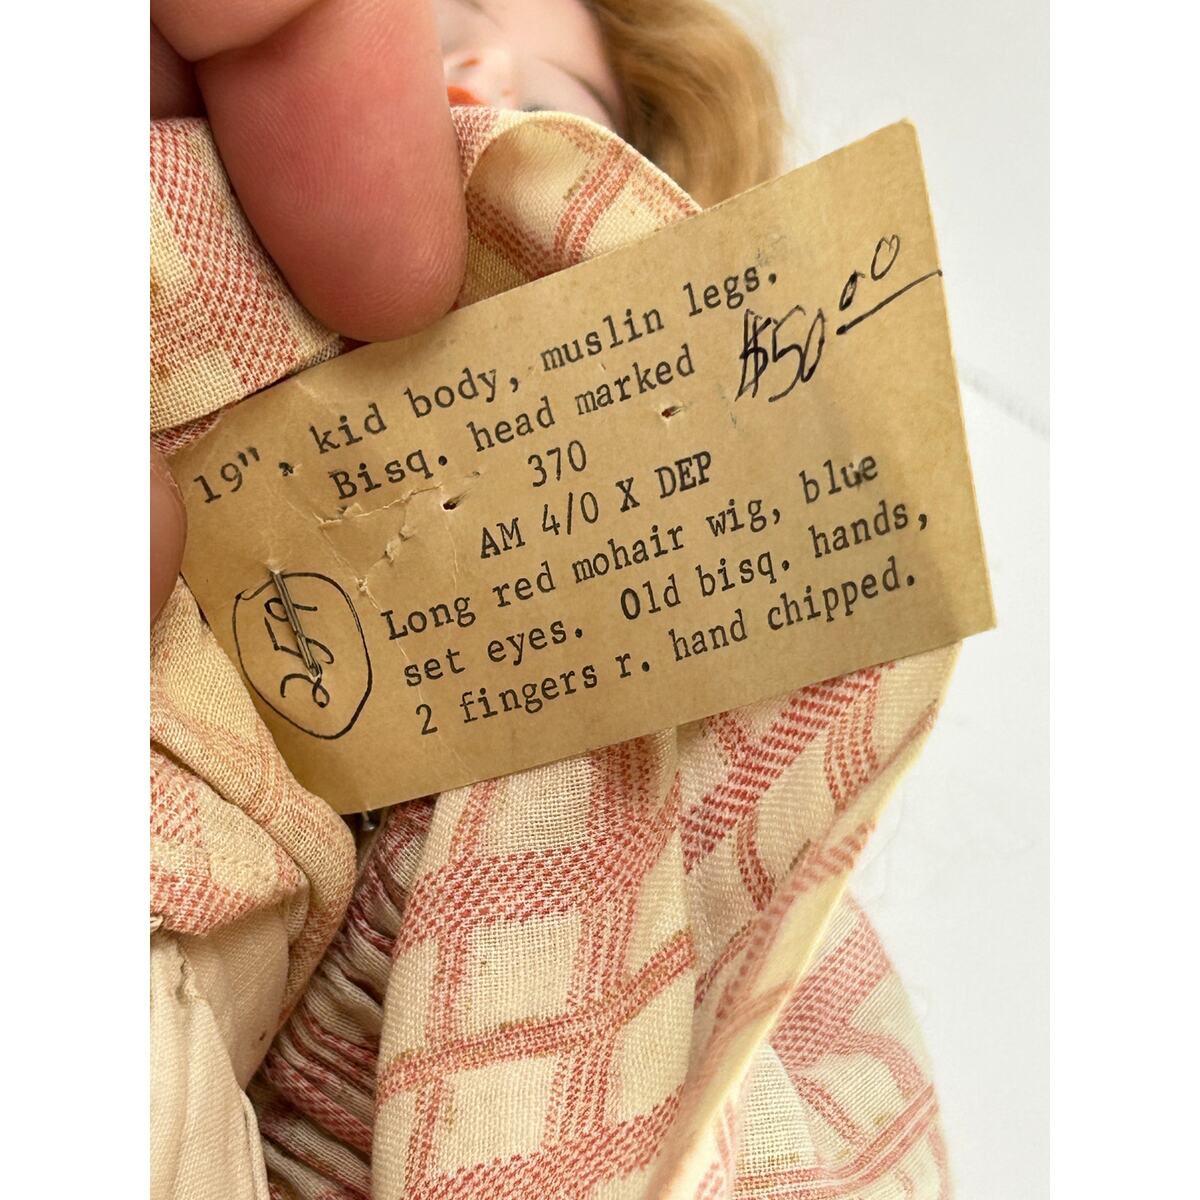 19", kid body, muslin legs.
Bisq. head marked
$50.00
370
AM 4/0 X DEP
Long red mohair wig, blue
set eyes. Old bisq. hands,
2 fingers r. hand chipped.
259